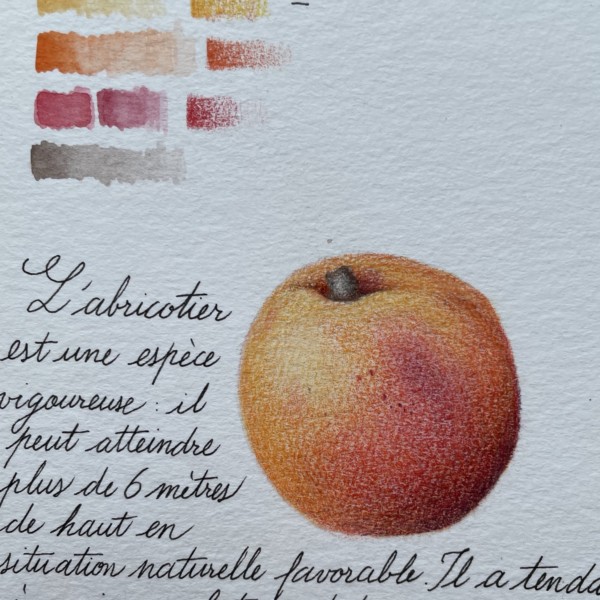 L'abricotier
est une espèce
vigoureuse : il
peut atteindre
plus de 6 mètres
de haut en
situation naturelle favorable. Il a tenda